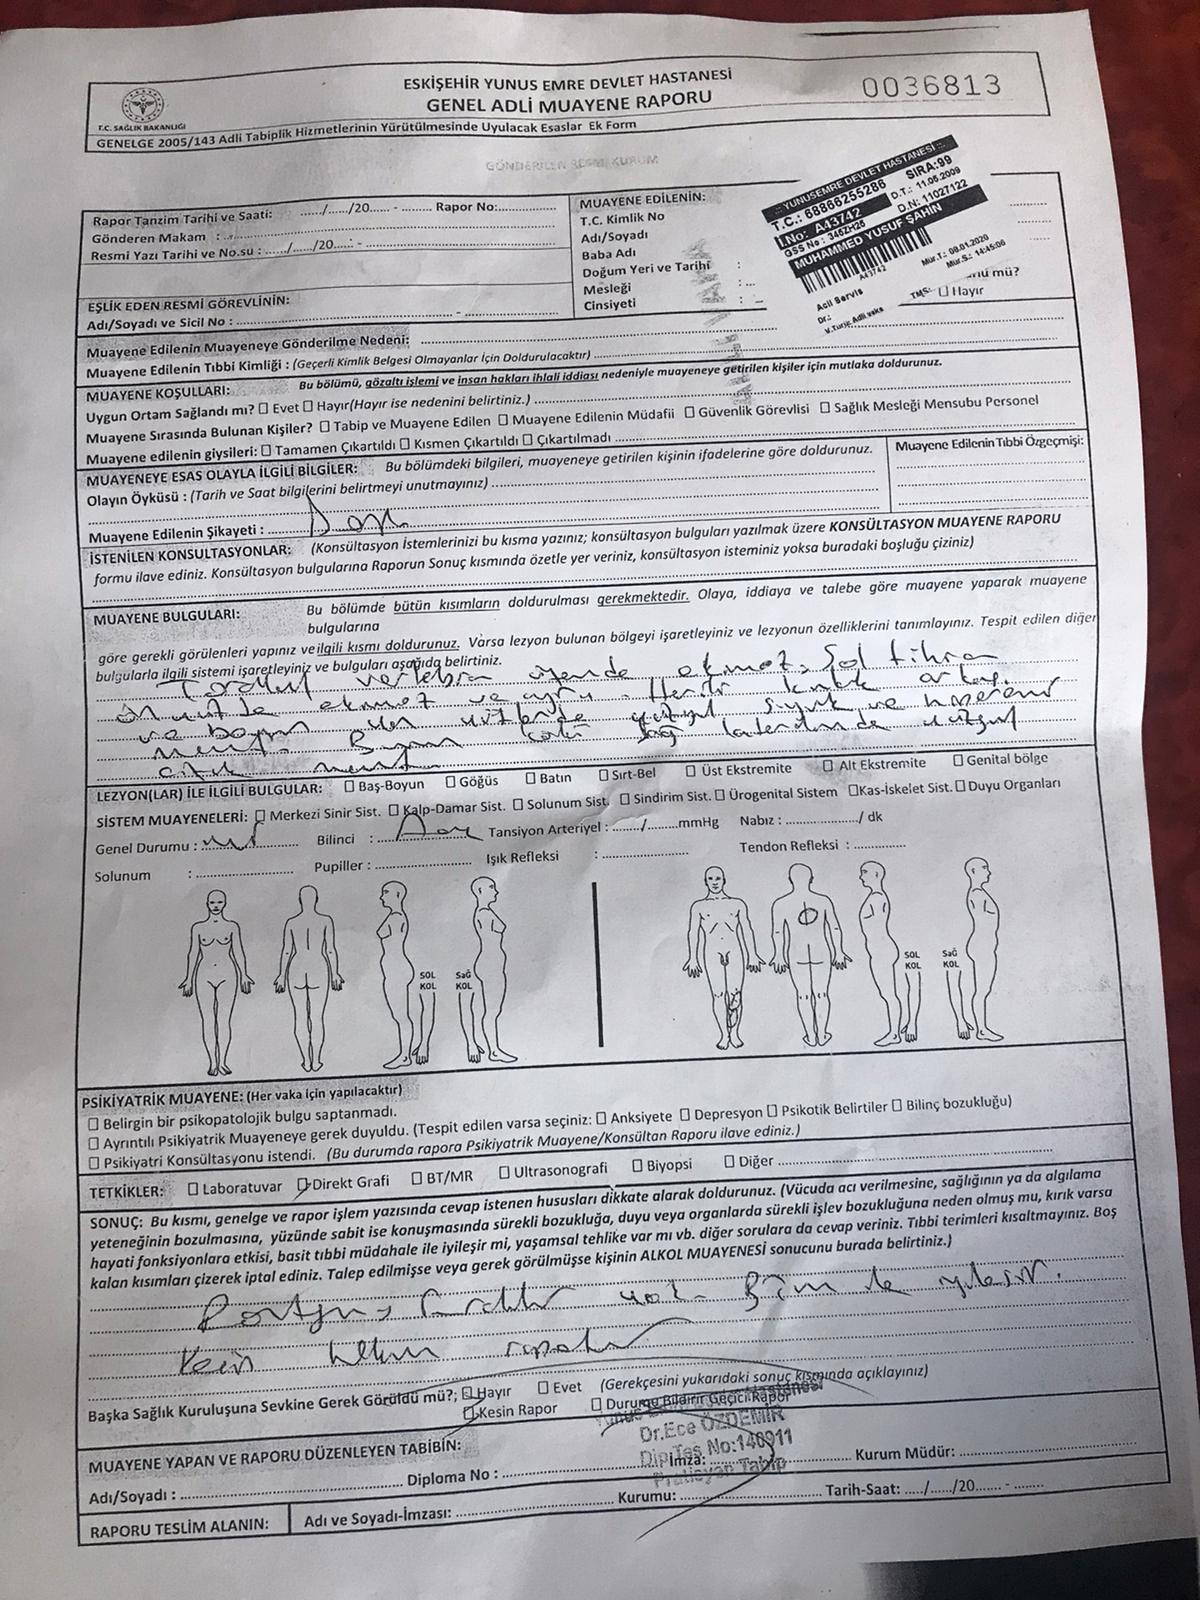 ESKİŞEHİR YUNUS EMRE DEVLET HASTANESİ
GENEL ADLİ MUAYENE RAPORU
0036813
T.C. SAĞLIK BAKANLIĞI
GENELGE 2005/143 Adli Tabiplik Hizmetlerinin Yürütülmesinde Uyulacak Esaslar Ek Form
GÖNDERİLEN RESMİ KURUM
Rapor Tanzim Tarihi ve Saati: ....../....../20...... - ......... Rapor No:
Gönderen Makam :
Resmi Yazı Tarihi ve No.su : ....../....../20...... -
EŞLİK EDEN RESMİ GÖREVLİNİN:
Adı/Soyadı ve Sicil No :
MUAYENE EDİLENİN:
T.C. Kimlik No
Adı/Soyadı
Baba Adı
Doğum Yeri ve Tarihi :
Mesleği :
Cinsiyeti :
::: YUNUSEMRE DEVLET HASTANESİ :::
T.C.: 68866255286 SIRA:99
I.No: A43742 D.T.: 11.05.2009
GSS No : 3462H26 D.N: 11027122
MUHAMMED YUSUF ŞAHİN
A43742
Mür.T.: 08.01.2020
Mür.S.: 14:45:06
Acil Servis
Dr.:
V.Türü: Adli vaka
TMS:
mü?
☐ Hayır
Muayene Edilenin Muayeneye Gönderilme Nedeni:
Muayene Edilenin Tıbbi Kimliği : (Geçerli Kimlik Belgesi Olmayanlar İçin Doldurulacaktır)
MUAYENE KOŞULLARI: Bu bölümü, gözaltı işlemi ve insan hakları ihlali iddiası nedeniyle muayeneye getirilen kişiler için mutlaka doldurunuz.
Uygun Ortam Sağlandı mı? ☐ Evet ☐ Hayır(Hayır ise nedenini belirtiniz.)
Muayene Sırasında Bulunan Kişiler? ☐ Tabip ve Muayene Edilen ☐ Muayene Edilenin Müdafii ☐ Güvenlik Görevlisi ☐ Sağlık Mesleği Mensubu Personel
Muayene edilenin giysileri: ☐ Tamamen Çıkartıldı ☐ Kısmen Çıkartıldı ☐ Çıkartılmadı
MUAYENEYE ESAS OLAYLA İLGİLİ BİLGİLER: Bu bölümdeki bilgileri, muayeneye getirilen kişinin ifadelerine göre doldurunuz.
Olayın Öyküsü : (Tarih ve Saat bilgilerini belirtmeyi unutmayınız)
Muayene Edilenin Tıbbi Özgeçmişi:
Muayene Edilenin Şikayeti :
İSTENİLEN KONSULTASYONLAR: (Konsültasyon İstemlerinizi bu kısma yazınız; konsültasyon bulguları yazılmak üzere KONSÜLTASYON MUAYENE RAPORU
formu ilave ediniz. Konsültasyon bulgularına Raporun Sonuç kısmında özetle yer veriniz, konsültasyon isteminiz yoksa buradaki boşluğu çiziniz)
MUAYENE BULGULARI: Bu bölümde bütün kısımların doldurulması gerekmektedir. Olaya, iddiaya ve talebe göre muayene yaparak muayene
bulgularına
göre gerekli görülenleri yapınız ve ilgili kısmı doldurunuz. Varsa lezyon bulunan bölgeyi işaretleyiniz ve lezyonun özelliklerini tanımlayınız. Tespit edilen diğer
bulgularla ilgili sistemi işaretleyiniz ve bulguları aşağıda belirtiniz.
vertebra üzerinde ekimoz. Sol tibia
ekimoz ve ağrı
ve boyun
sağ
LEZYON(LAR) İLE İLGİLİ BULGULAR: ☐ Baş-Boyun ☐ Göğüs ☐ Batın ☐ Sırt-Bel ☐ Üst Ekstremite ☐ Alt Ekstremite ☐ Genital bölge
SİSTEM MUAYENELERİ: ☐ Merkezi Sinir Sist. ☐ Kalp-Damar Sist. ☐ Solunum Sist. ☐ Sindirim Sist. ☐ Ürogenital Sistem ☐ Kas-İskelet Sist. ☐ Duyu Organları
Genel Durumu : Bilinci : Tansiyon Arteriyel : ......../........mmHg Nabız : ............../ dk
Solunum : Pupiller : Işık Refleksi : Tendon Refleksi :
SOL KOL
Sağ KOL
SOL KOL
SağG KOL
PSİKİYATRİK MUAYENE: (Her vaka için yapılacaktır)
☐ Belirgin bir psikopatolojik bulgu saptanmadı.
☐ Ayrıntılı Psikiyatrik Muayeneye gerek duyuldu. (Tespit edilen varsa seçiniz: ☐ Anksiyete ☐ Depresyon ☐ Psikotik Belirtiler ☐ Bilinç bozukluğu)
☐ Psikiyatri Konsültasyonu istendi. (Bu durumda rapora Psikiyatrik Muayene/Konsültan Raporu ilave ediniz.)
TETKİKLER: ☐ Laboratuvar ☐ Direkt Grafi ☐ BT/MR ☐ Ultrasonografi ☐ Biyopsi ☐ Diğer
SONUÇ: Bu kısmı, genelge ve rapor işlem yazısında cevap istenen hususları dikkate alarak doldurunuz. (Vücuda acı verilmesine, sağlığının ya da algılama
yeteneğinin bozulmasına, yüzünde sabit ise konuşmasında sürekli bozukluğa, duyu veya organlarda sürekli işlev bozukluğuna neden olmuş mu, kırık varsa
hayati fonksiyonlara etkisi, basit tıbbi müdahale ile iyileşir mi, yaşamsal tehlike var mı vb. diğer sorulara da cevap veriniz. Tıbbi terimleri kısaltmayınız. Boş
kalan kısımları çizerek iptal ediniz. Talep edilmişse veya gerek görülmüşse kişinin ALKOL MUAYENESİ sonucunu burada belirtiniz.)
yok. ile iyileşir.
Kesin hekim raporudur
Başka Sağlık Kuruluşuna Sevkine Gerek Görüldü mü?; ☐ Hayır ☐ Evet (Gerekçesini yukarıdaki sonuç kısmında açıklayınız)
☐ Kesin Rapor ☐ Durumu Bildirir Geçici Rapor
MUAYENE YAPAN VE RAPORU DÜZENLEYEN TABİBİN:
Dr.Ece ÖZDEMİR
Dip.Tes.No:146911
Pratisyen Tabip
Adı/Soyadı : Diploma No : İmza: Kurum Müdür:
RAPORU TESLİM ALANIN: Adı ve Soyadı-İmzası: Kurumu: Tarih-Saat: ...../...../20...... -